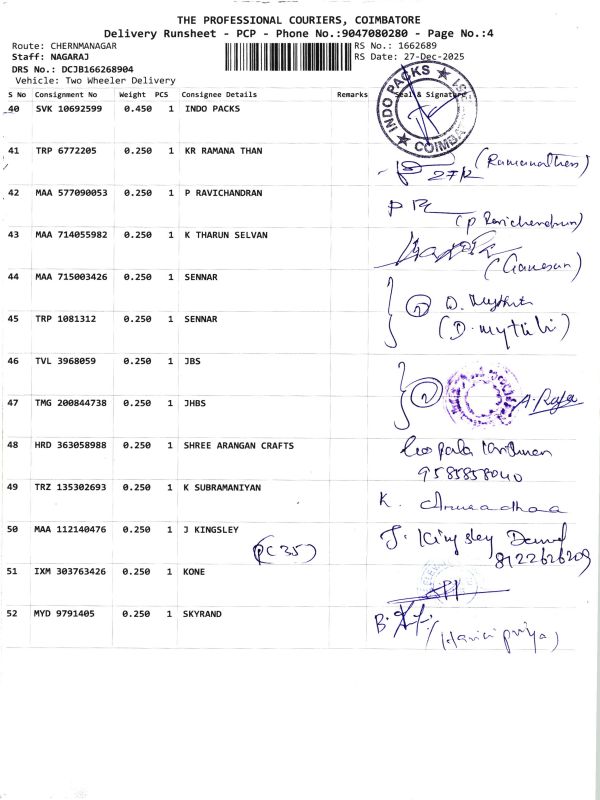 THE PROFESSIONAL COURIERS, COIMBATORE
Delivery Runsheet - PCP - Phone No.:9047080280 - Page No.:4
Route: CHERNMANAGAR RS No.: 1662689
Staff: NAGARAJ RS Date: 27-Dec-2025
DRS No.: DCJB166268904
Vehicle: Two Wheeler Delivery
S No Consignment No Weight PCS Consignee Details Remarks Seal & Signature
40 SVK 10692599 0.450 1 INDO PACKS
INDO PACKS ★ ★ COIMBA
41 TRP 6772205 0.250 1 KR RAMANA THAN
27/12 (Ramanathan)
42 MAA 577090053 0.250 1 P RAVICHANDRAN
(P Ravichandran)
43 MAA 714055982 0.250 1 K THARUN SELVAN
(Ganesan)
44 MAA 715003426 0.250 1 SENNAR
2 D. Mythili
45 TRP 1081312 0.250 1 SENNAR
(D. Mythili)
46 TVL 3968059 0.250 1 JBS
2 A. Raja
47 TMG 200844738 0.250 1 JHBS
48 HRD 363058988 0.250 1 SHREE ARANGAN CRAFTS
9585858040
49 TRZ 135302693 0.250 1 K SUBRAMANIYAN
K. Anuradhaa
50 MAA 112140476 0.250 1 J KINGSLEY
(PC 35) J. Kingsley
8122626209
51 IXM 303763426 0.250 1 KONE
52 MYD 9791405 0.250 1 SKYRAND
B.
(Haripriya)